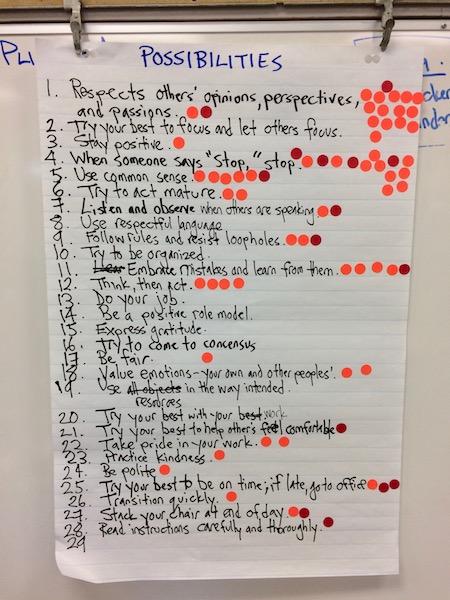 POSSIBILITIES
1. Respects others' opinions, perspectives,
and passions.
2. Try your best to focus and let others focus.
3. Stay positive.
4. When someone says "Stop," stop.
5. Use common sense!
6. Try to act mature.
7. Listen and observe when others are speaking.
8. Use respectful language
9. Follow rules and resist loopholes.
10. Try to be organized.
11. Embrace mistakes and learn from them.
12. Think, then act.
13. Do your job.
14. Be a positive role model.
15. Express gratitude.
16. Try to come to concensus
17. Be fair.
18. Value emotions - your own and other peoples'.
19. Use all objects in the way intended.
resources
20. Try your best with your best work
21. Try your best to help other's feel comfortable
22. Take pride in your work.
23. Practice kindness.
24. Be polite
25. Try your best to be on time; if late, go to office
26. Transition quickly.
27. Stack your chair at end of day.
28. Read instructions carefully and thoroughly.
29